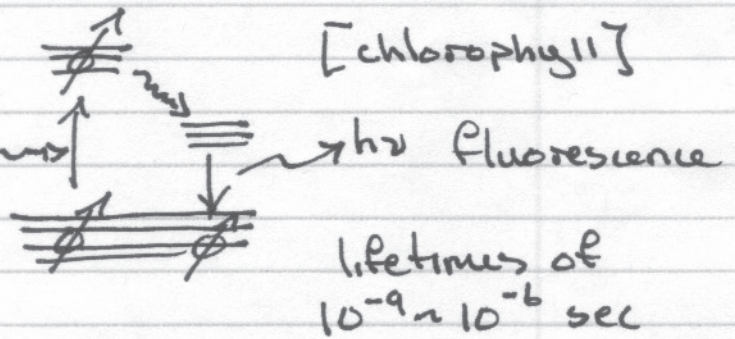 [chlorophyll]
hν fluorescence
lifetimes of
10⁻⁹ ~ 10⁻⁶ sec